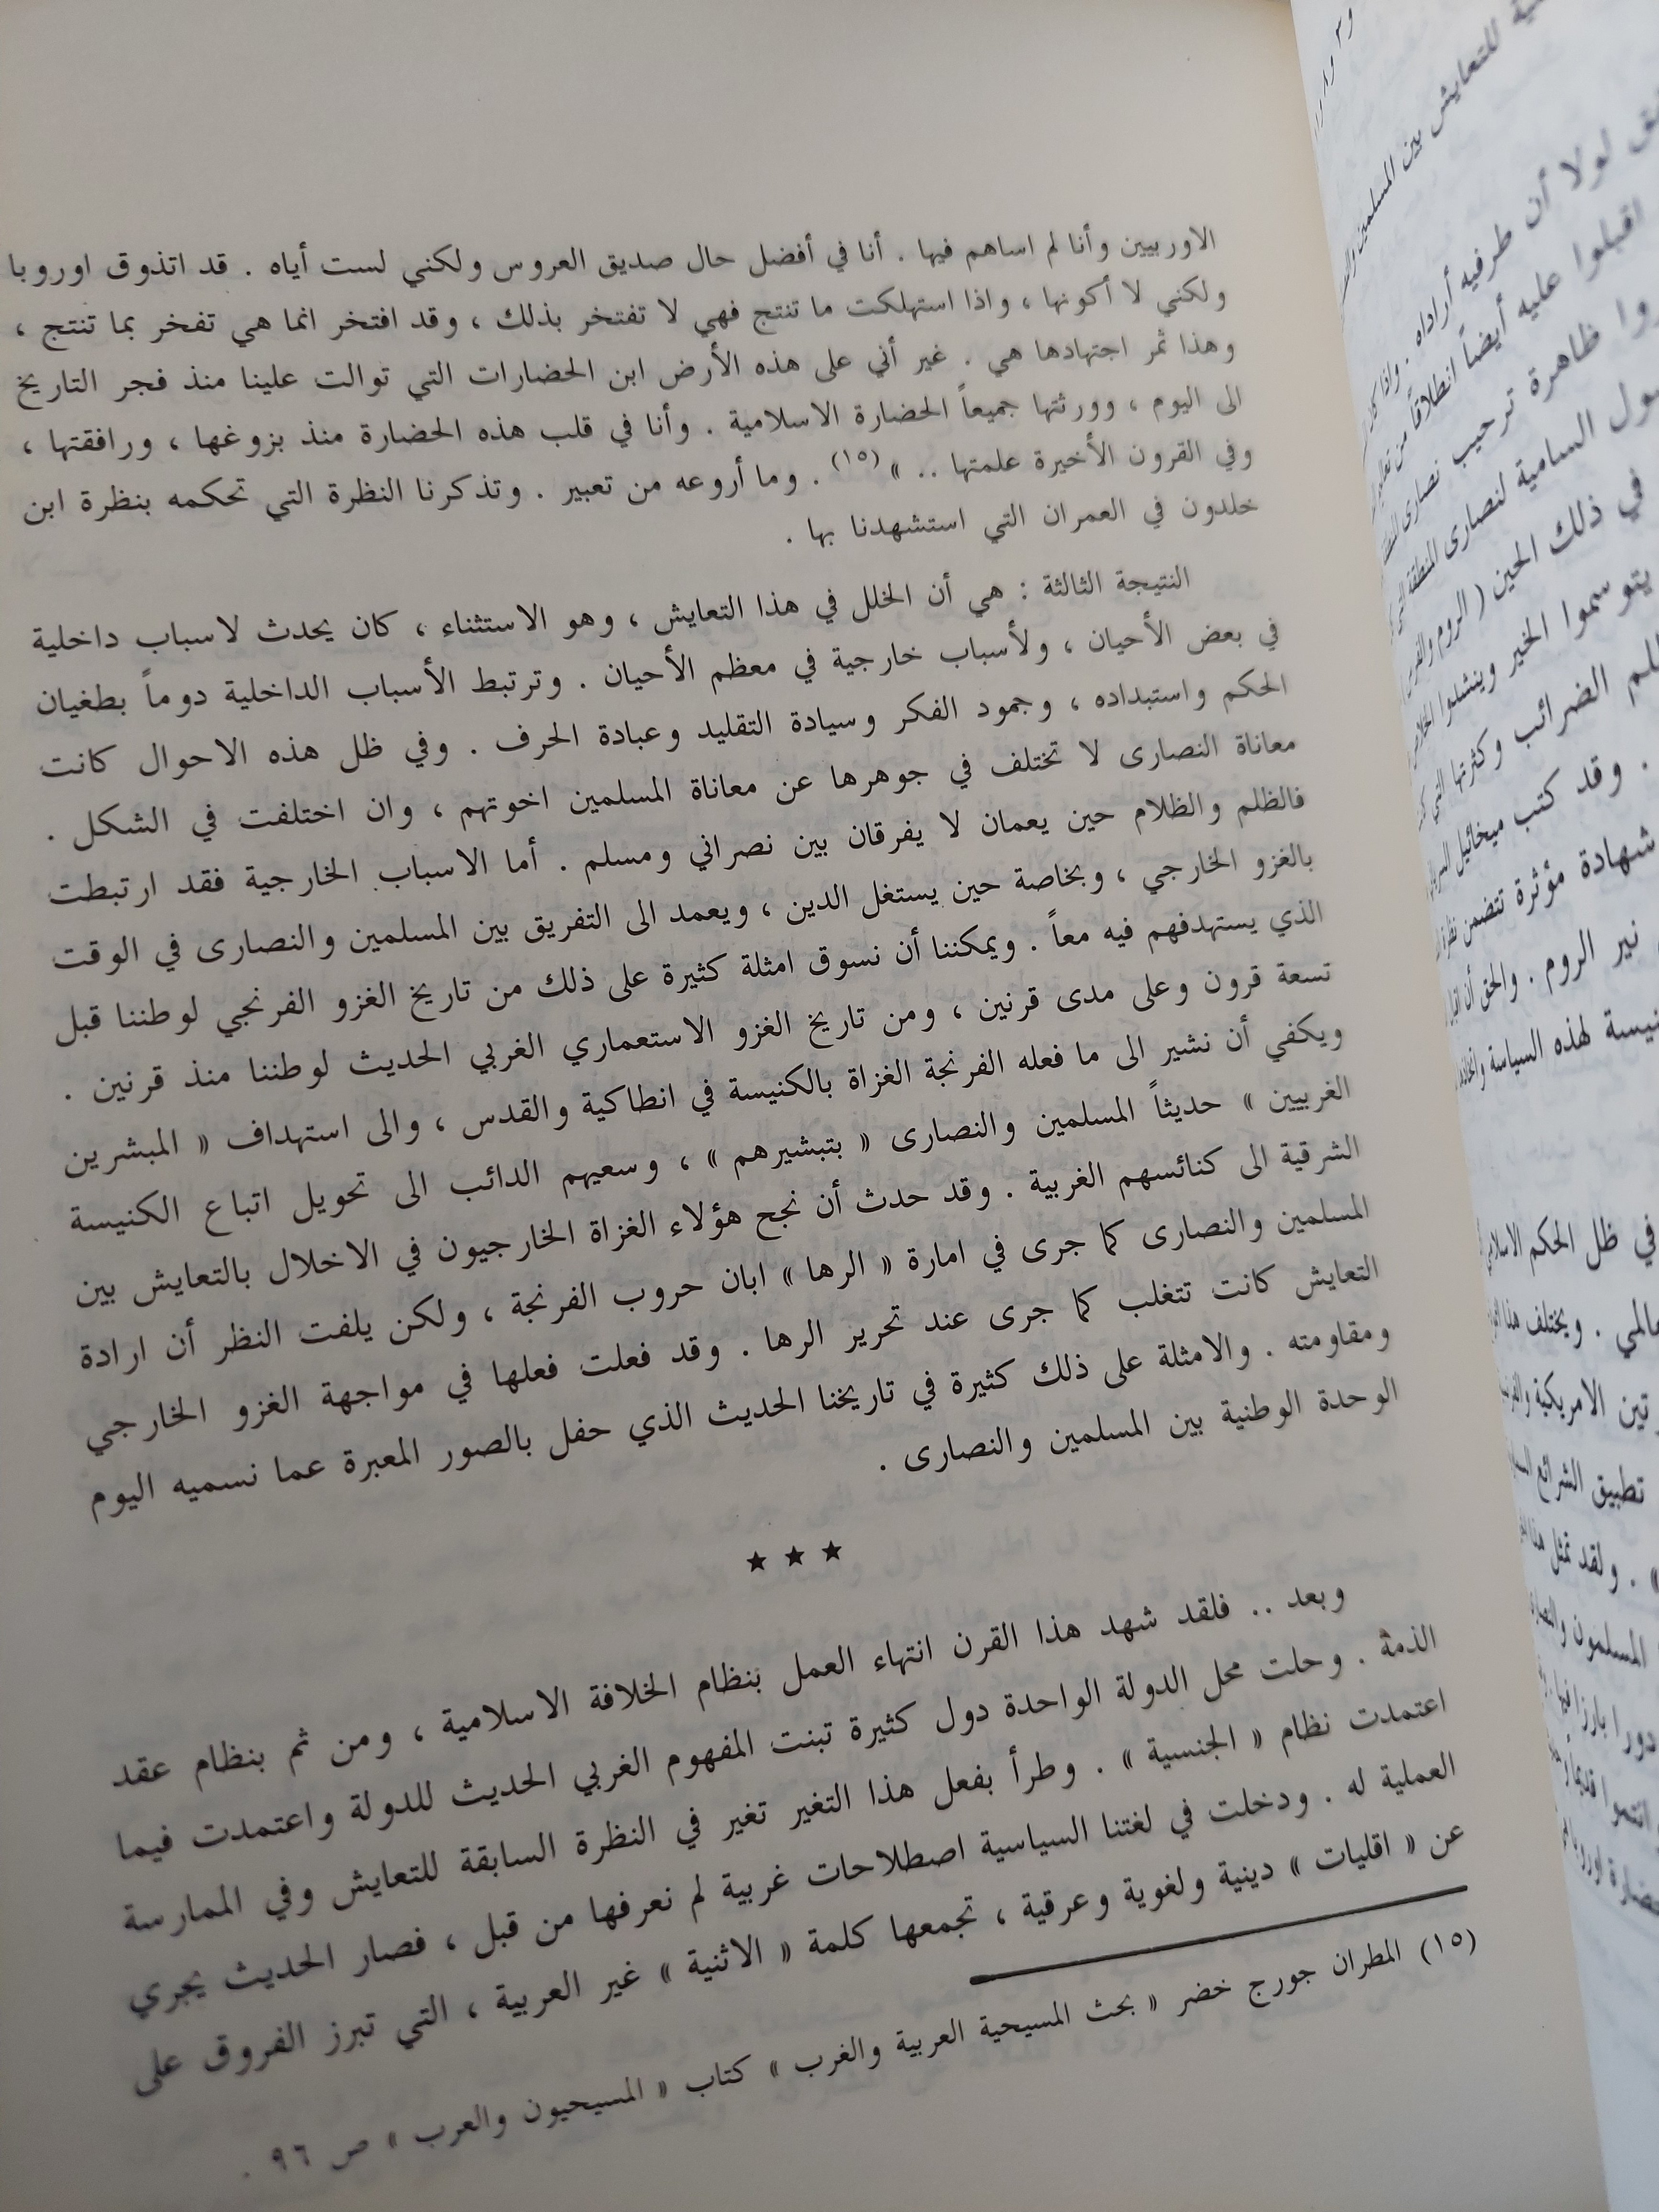 الاوربيين وأنا لم اساهم فيها . أنا في أفضل حال صديق العروس ولكني لست أياه . قد اتذوق اوروبا
ولكني لا أكونها ، واذا استهلكت ما تنتج فهي لا تفتخر بذلك ، وقد افتخر انما هي تفخر بما تنتج ،
وهذا ثمر اجتهادها هي . غير أني على هذه الأرض ابن الحضارات التي توالت علينا منذ فجر التاريخ
الى اليوم ، وورثتها جميعاً الحضارة الاسلامية . وأنا في قلب هذه الحضارة منذ بزوغها ، ورافقتها ،
وفي القرون الأخيرة علمتها .. » (١٥) . وما أروعه من تعبير . وتذكرنا النظرة التي تحكمه بنظرة ابن
خلدون في العمران التي استشهدنا بها .
النتيجة الثالثة : هي أن الخلل في هذا التعايش ، وهو الاستثناء ، كان يحدث لاسباب داخلية
في بعض الأحيان ، ولأسباب خارجية في معظم الأحيان . وترتبط الأسباب الداخلية دوماً بطغيان
الحكم واستبداده ، وجمود الفكر وسيادة التقليد وعبادة الحرف . وفي ظل هذه الاحوال كانت
معاناة النصارى لا تختلف في جوهرها عن معاناة المسلمين اخوتهم ، وان اختلفت في الشكل .
فالظلم والظلام حين يعمان لا يفرقان بين نصراني ومسلم . أما الاسباب الخارجية فقد ارتبطت
بالغزو الخارجي ، وبخاصة حين يستغل الدين ، ويعمد الى التفريق بين المسلمين والنصارى في الوقت
الذي يستهدفهم فيه معاً . ويمكننا أن نسوق امثلة كثيرة على ذلك من تاريخ الغزو الفرنجي لوطننا قبل
تسعة قرون وعلى مدى قرنين ، ومن تاريخ الغزو الاستعماري الغربي الحديث لوطننا منذ قرنين .
ويكفي أن نشير الى ما فعله الفرنجة الغزاة بالكنيسة في انطاكية والقدس ، والى استهداف « المبشرين
الغربيين » حديثاً المسلمين والنصارى « بتبشيرهم » ، وسعيهم الدائب الى تحويل اتباع الكنيسة
الشرقية الى كنائسهم الغربية . وقد حدث أن نجح هؤلاء الغزاة الخارجيون في الاخلال بالتعايش بين
المسلمين والنصارى كما جرى في امارة « الرها » ابان حروب الفرنجة ، ولكن يلفت النظر أن ارادة
التعايش كانت تتغلب كما جرى عند تحرير الرها . وقد فعلت فعلها في مواجهة الغزو الخارجي
ومقاومته . والامثلة على ذلك كثيرة في تاريخنا الحديث الذي حفل بالصور المعبرة عما نسميه اليوم
الوحدة الوطنية بين المسلمين والنصارى .
★ ★ ★
وبعد .. فلقد شهد هذا القرن انتهاء العمل بنظام الخلافة الاسلامية ، ومن ثم بنظام عقد
الذمة . وحلت محل الدولة الواحدة دول كثيرة تبنت المفهوم الغربي الحديث للدولة واعتمدت فيما
اعتمدت نظام « الجنسية » . وطرأ بفعل هذا التغير تغير في النظرة السابقة للتعايش وفي الممارسة
العملية له . ودخلت في لغتنا السياسية اصطلاحات غربية لم نعرفها من قبل ، فصار الحديث يجري
عن « اقليات » دينية ولغوية وعرقية ، تجمعها كلمة « الاثنية » غير العربية ، التي تبرز الفروق على
(١٥) المطران جورج خضر « بحث المسيحية العربية والغرب » كتاب « المسيحيون والعرب » ص ٩٦ .
للتعايش بين المسلمين
لولا أن طرفيه أراداه . واذا
اقبلوا عليه أيضاً انطلاقاً من
ظاهرة ترحيب نصارى
السامية لنصارى المنطقة
في ذلك الحين ( الروم والفرس
يتوسموا الخير وينشدوا
الضرائب وكثرتها التي
. وقد كتب ميخائيل
شهادة مؤثرة تتضمن
نير الروم . والحق أن
لهذه السياسة
في ظل الحكم الاسلامي
. ويختلف هذا
الامريكية
تطبيق الشرائع
» . ولقد تمثل هذا
المسلمون
دورا بارزا فيها